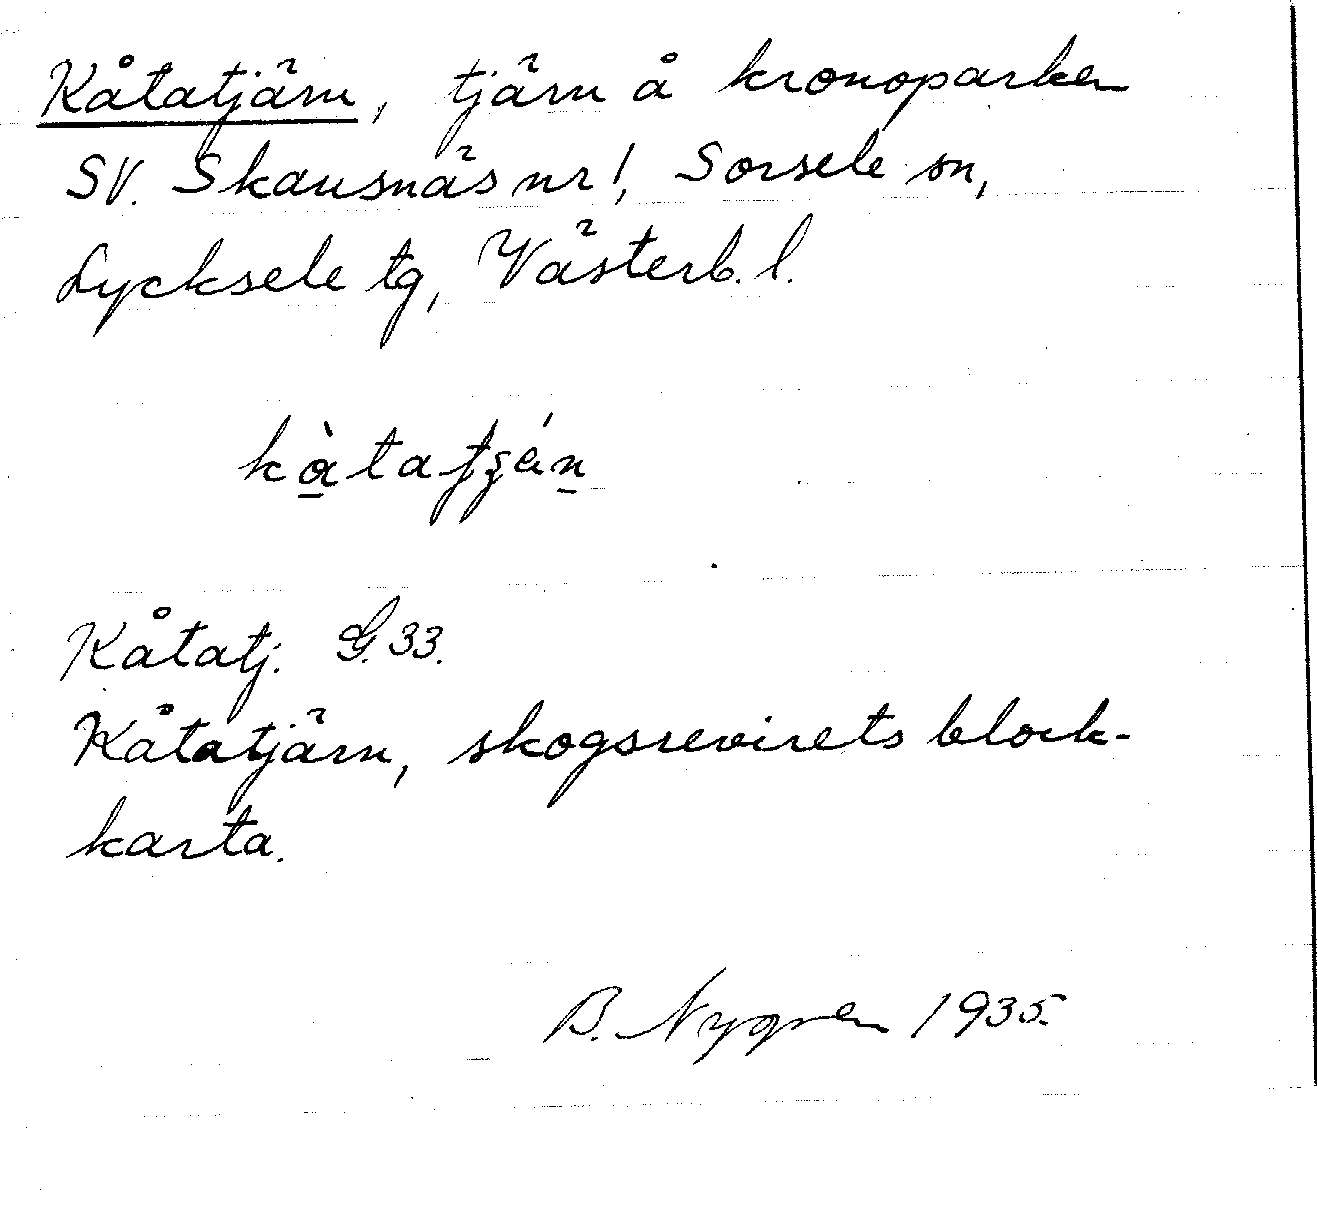 Kåtatjärn, tjärn å kronoparken
SV. Skansnäs nr 1, Sorsele sn,
Lycksele tg, Västerb. l.
Kåtatj. G. 33.
Kåtatjärn, skogsrevirets block-
karta.
B. Nygren 1935.